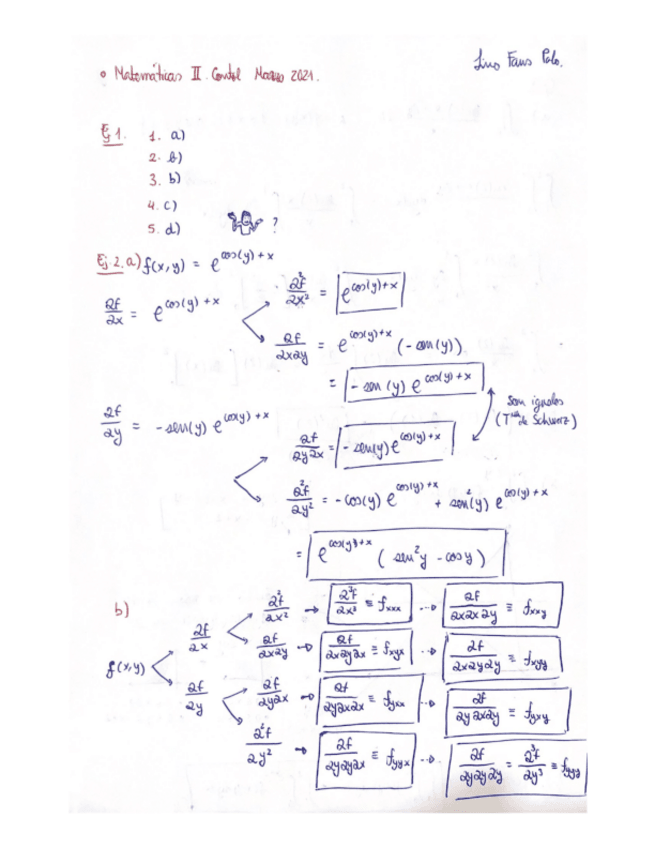 Lino Faus Polo.
• Matemáticas II. Control Marzo 2021.
Ej 1. 1. a)
2. b)
3. b)
4. c)
5. d) ?
Ej. 2. a) f(x,y) = e^{cos(y) + x}
∂f/∂x = e^{cos(y) + x}
∂²f/∂x² = e^{cos(y)+x}
∂f/∂x∂y = e^{cos(y)+x} (-sen(y))
= - sen (y) e^{cos(y) + x}
son iguales
(T^{ma} de Schwarz)
∂f/∂y = - sen(y) e^{cos(y) + x}
∂f/∂y∂x = - sen(y) e^{cos(y) + x}
∂²f/∂y² = - cos(y) e^{cos(y) + x} + sen²(y) e^{cos(y) + x}
= e^{cos(y) + x} (sen²y - cos y)
b)
f(x,y)
∂f/∂x
∂²f/∂x² → ∂³f/∂x³ ≡ f_{xxx} ⇢ ∂f/∂x∂x∂y ≡ f_{xxy}
∂f/∂x∂y → ∂f/∂x∂y∂x ≡ f_{xyx} ⇢ ∂f/∂x∂y∂y ≡ f_{xyy}
∂f/∂y
∂f/∂y∂x → ∂f/∂y∂x∂x ≡ f_{yxx} ⇢ ∂f/∂y∂x∂y ≡ f_{yxy}
∂²f/∂y² → ∂f/∂y∂y∂x ≡ f_{yyx} ⇢ ∂f/∂y∂y∂y = ∂³f/∂y³ ≡ f_{yyy}